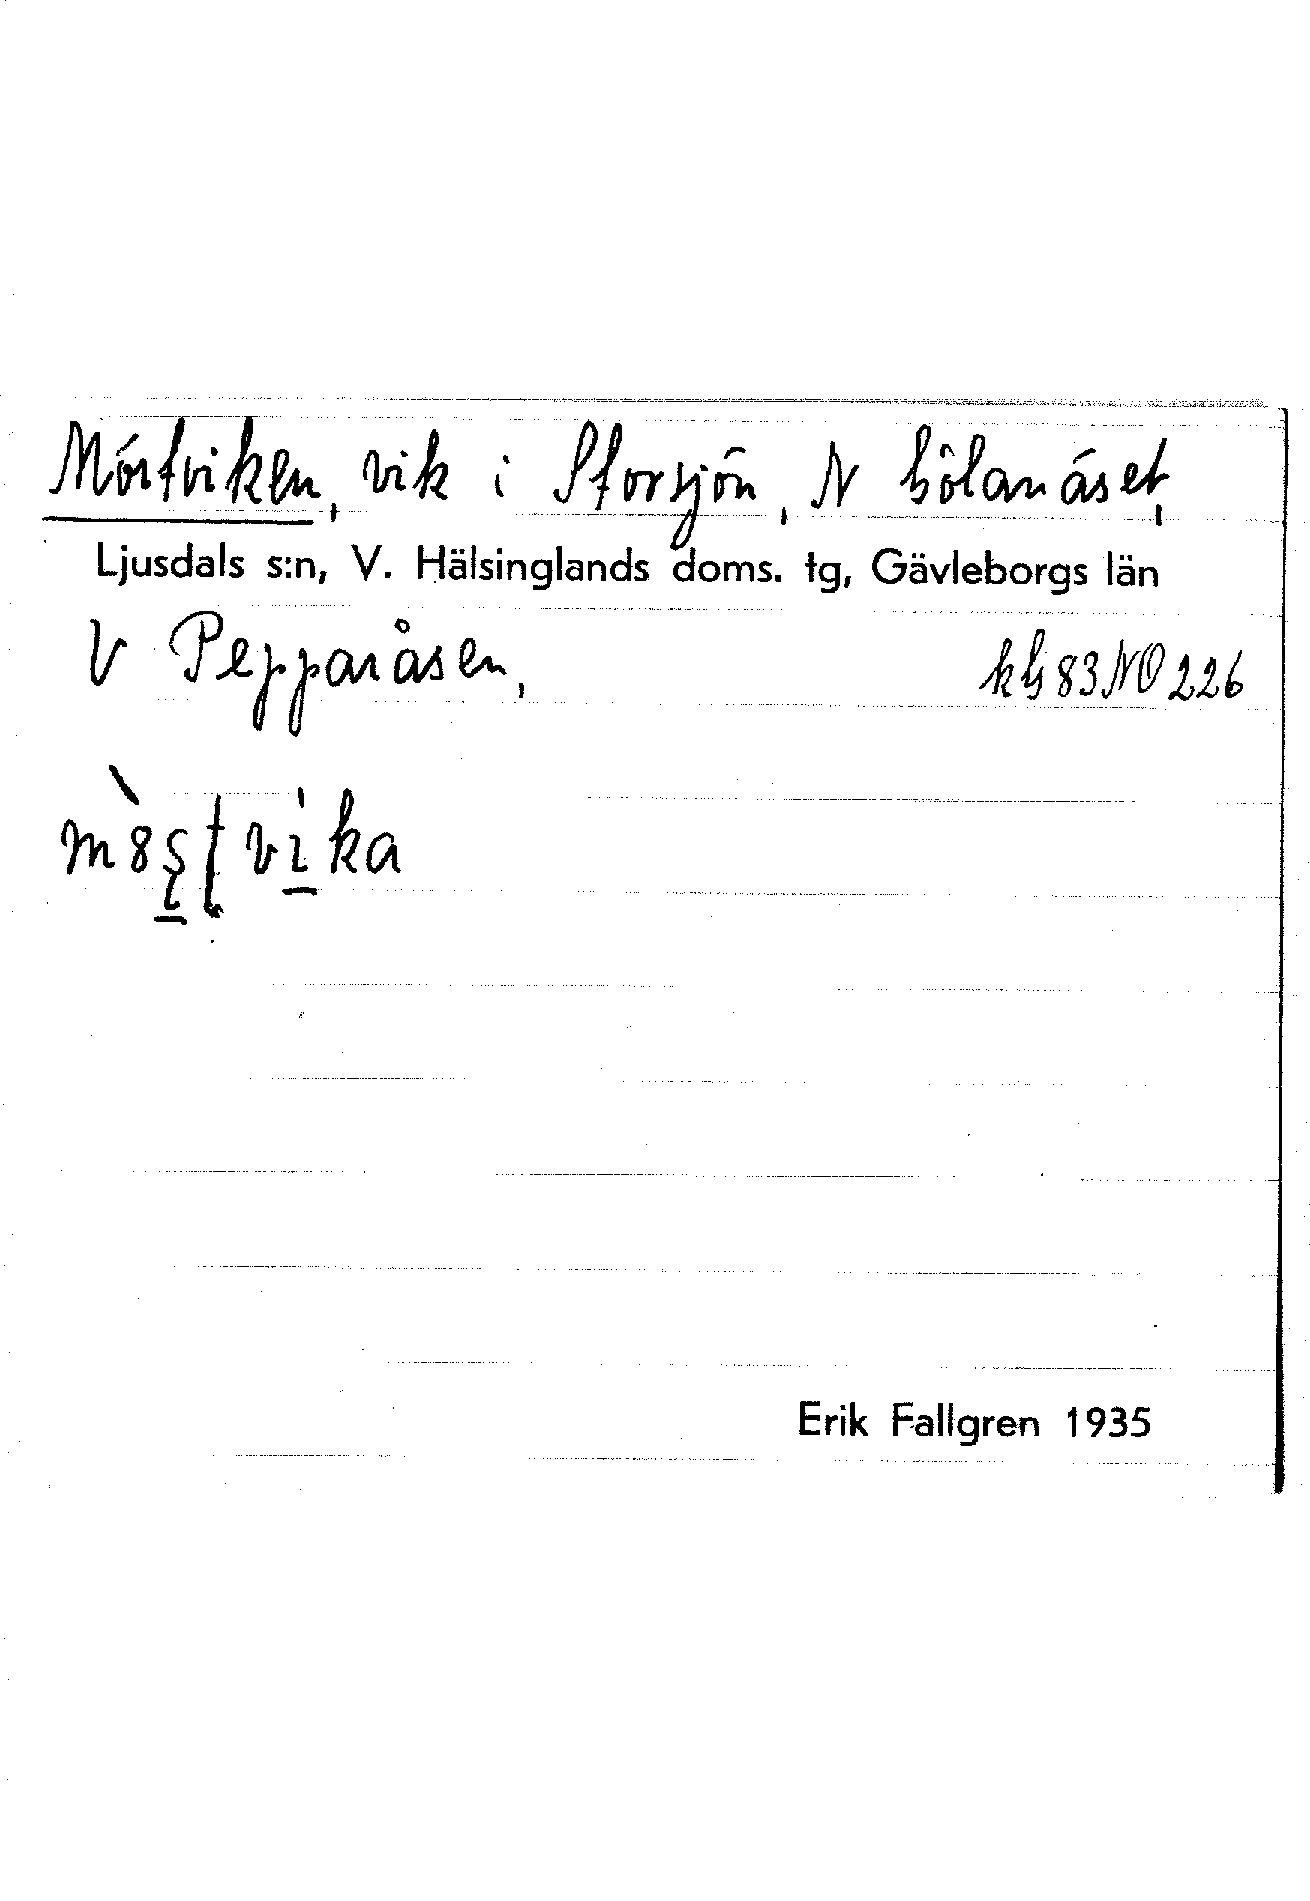 Mörtviken, vik i Storsjön, N Bölanäset,
Ljusdals s:n, V. Hälsinglands doms. tg, Gävleborgs län
V Pepparåsen, kbl 83 NO 226
Erik Fallgren 1935